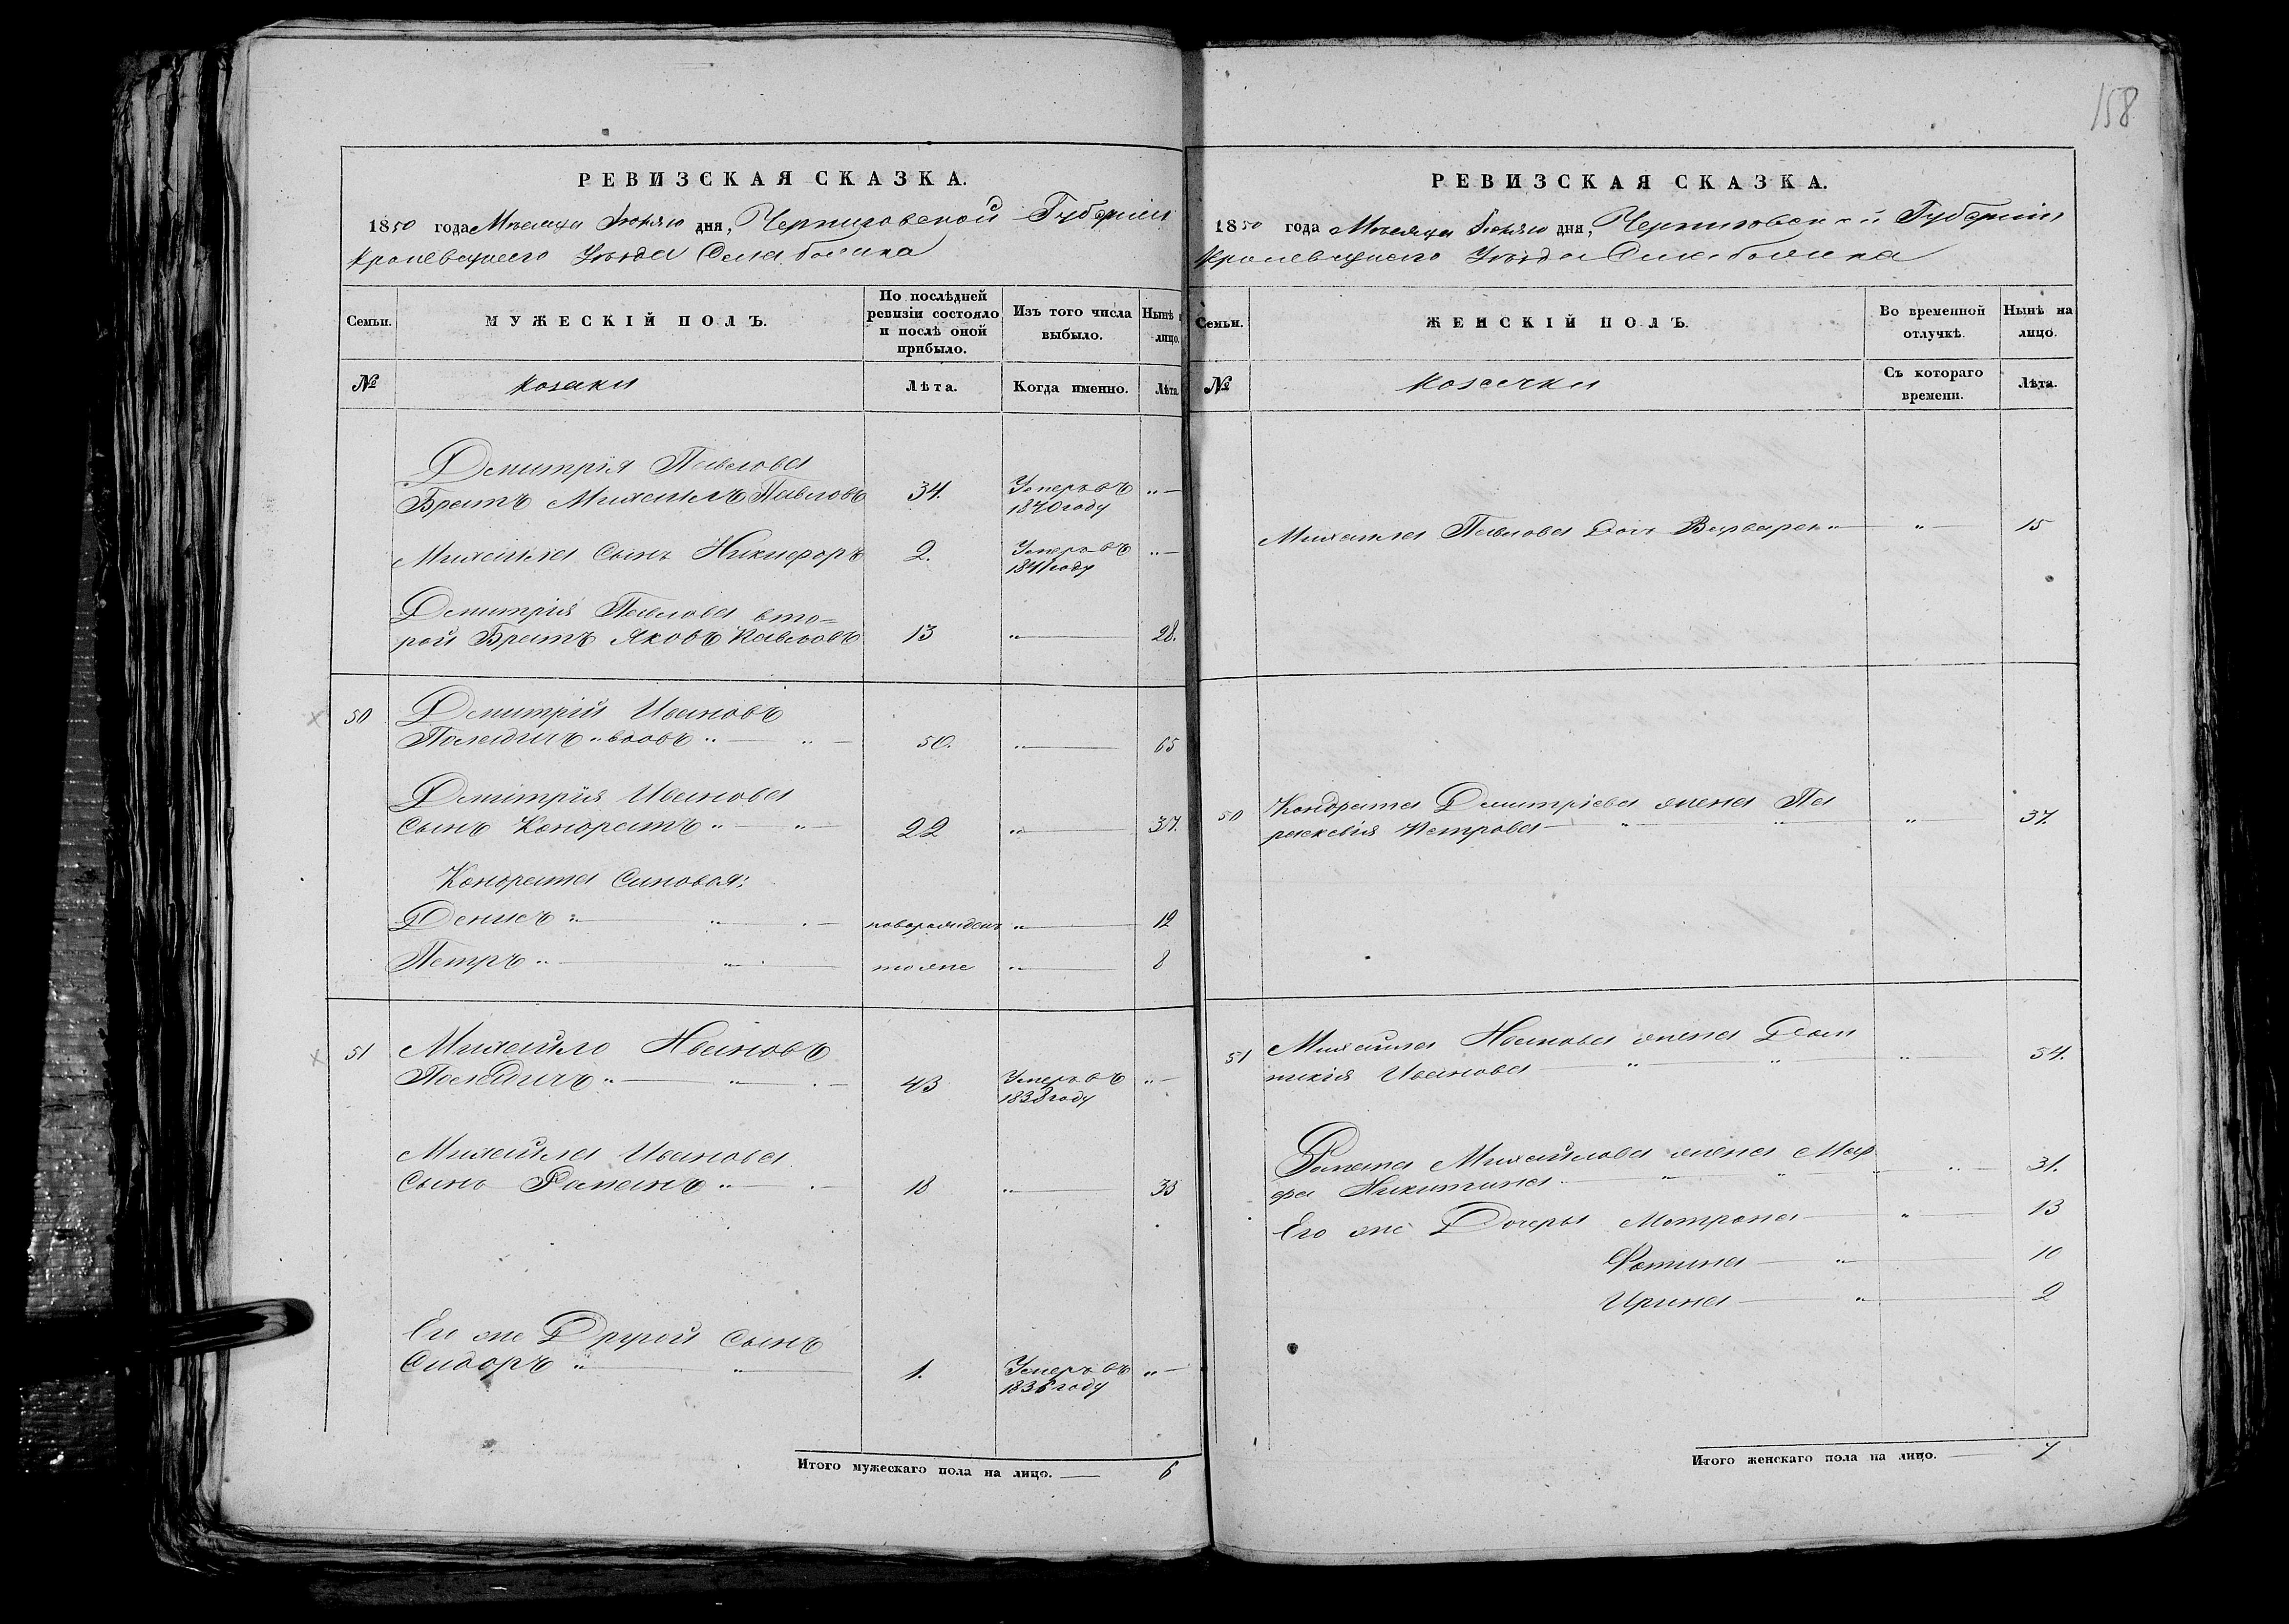 158
РЕВИЗСКАЯ СКАЗКА.
1850 года Месяца Іюня дня, Черниговской Губерніи
Кролевецкого Уезда Села
Семьи. МУЖЕСКІЙ ПОЛЪ. По послѣдней ревизіи состояло и послѣ оной прибыло. Изъ того числа выбыло. Нынѣ лицо.
№ Козаки Лѣта. Когда именно. Лѣта.
Демитрія Павлова
Братъ Михаилъ Павловъ 34. Умеръ въ 1840 году „—
Михаила Сынъ Никифоръ 2. Умеръ въ 1841 году „—
Демитрія Павлова вто=
рой Братъ Яковъ Павловъ 13 „— 28.
50 Демитрій Ивановъ
„ вдовъ „— „— 50. „— 65
Демитрія Иванова
Сынъ Кондратъ „— „— 22 „— 37.
Кондрата Синовья:
Денисъ „— „— новорожденъ „— 12
Петръ „— „— тоже „— 8
51 Михайло Ивановъ
„— „— 43 Умеръ въ 1838 году „—
Михайла Иванова
Сынъ Романъ „— 18 „— 33
Его же Другой Сынъ
Сидоръ „— „— 1. Умеръ въ году „—
Итого мужескаго пола на лицо. — 6
РЕВИЗСКАЯ СКАЗКА.
1850 года Месяца Іюня дня, Черниговской Губерніи
Кролевецкого Уезда Села
Семьи. ЖЕНСКІЙ ПОЛЪ. Во временной отлучкѣ. Нынѣ на лицо.
№ Козачки Съ котораго времени. Лѣта.
Михаила Павлова Доч Варвара „— „— 15
50 Кондрата Демитріева жена Па
раскевія Петрова — „— „— „— 37.
51 Михайла Иванова жена Дом
никія Иванова — „— „— „— 54.
Романа Михайлова жена Мар
фа Никитина — „— „— „— 31.
Его же Дочеры Мотрона — „— 13
Фотина — „— 10
Ирина — „— 2
Итого женскаго пола на лицо. — 7